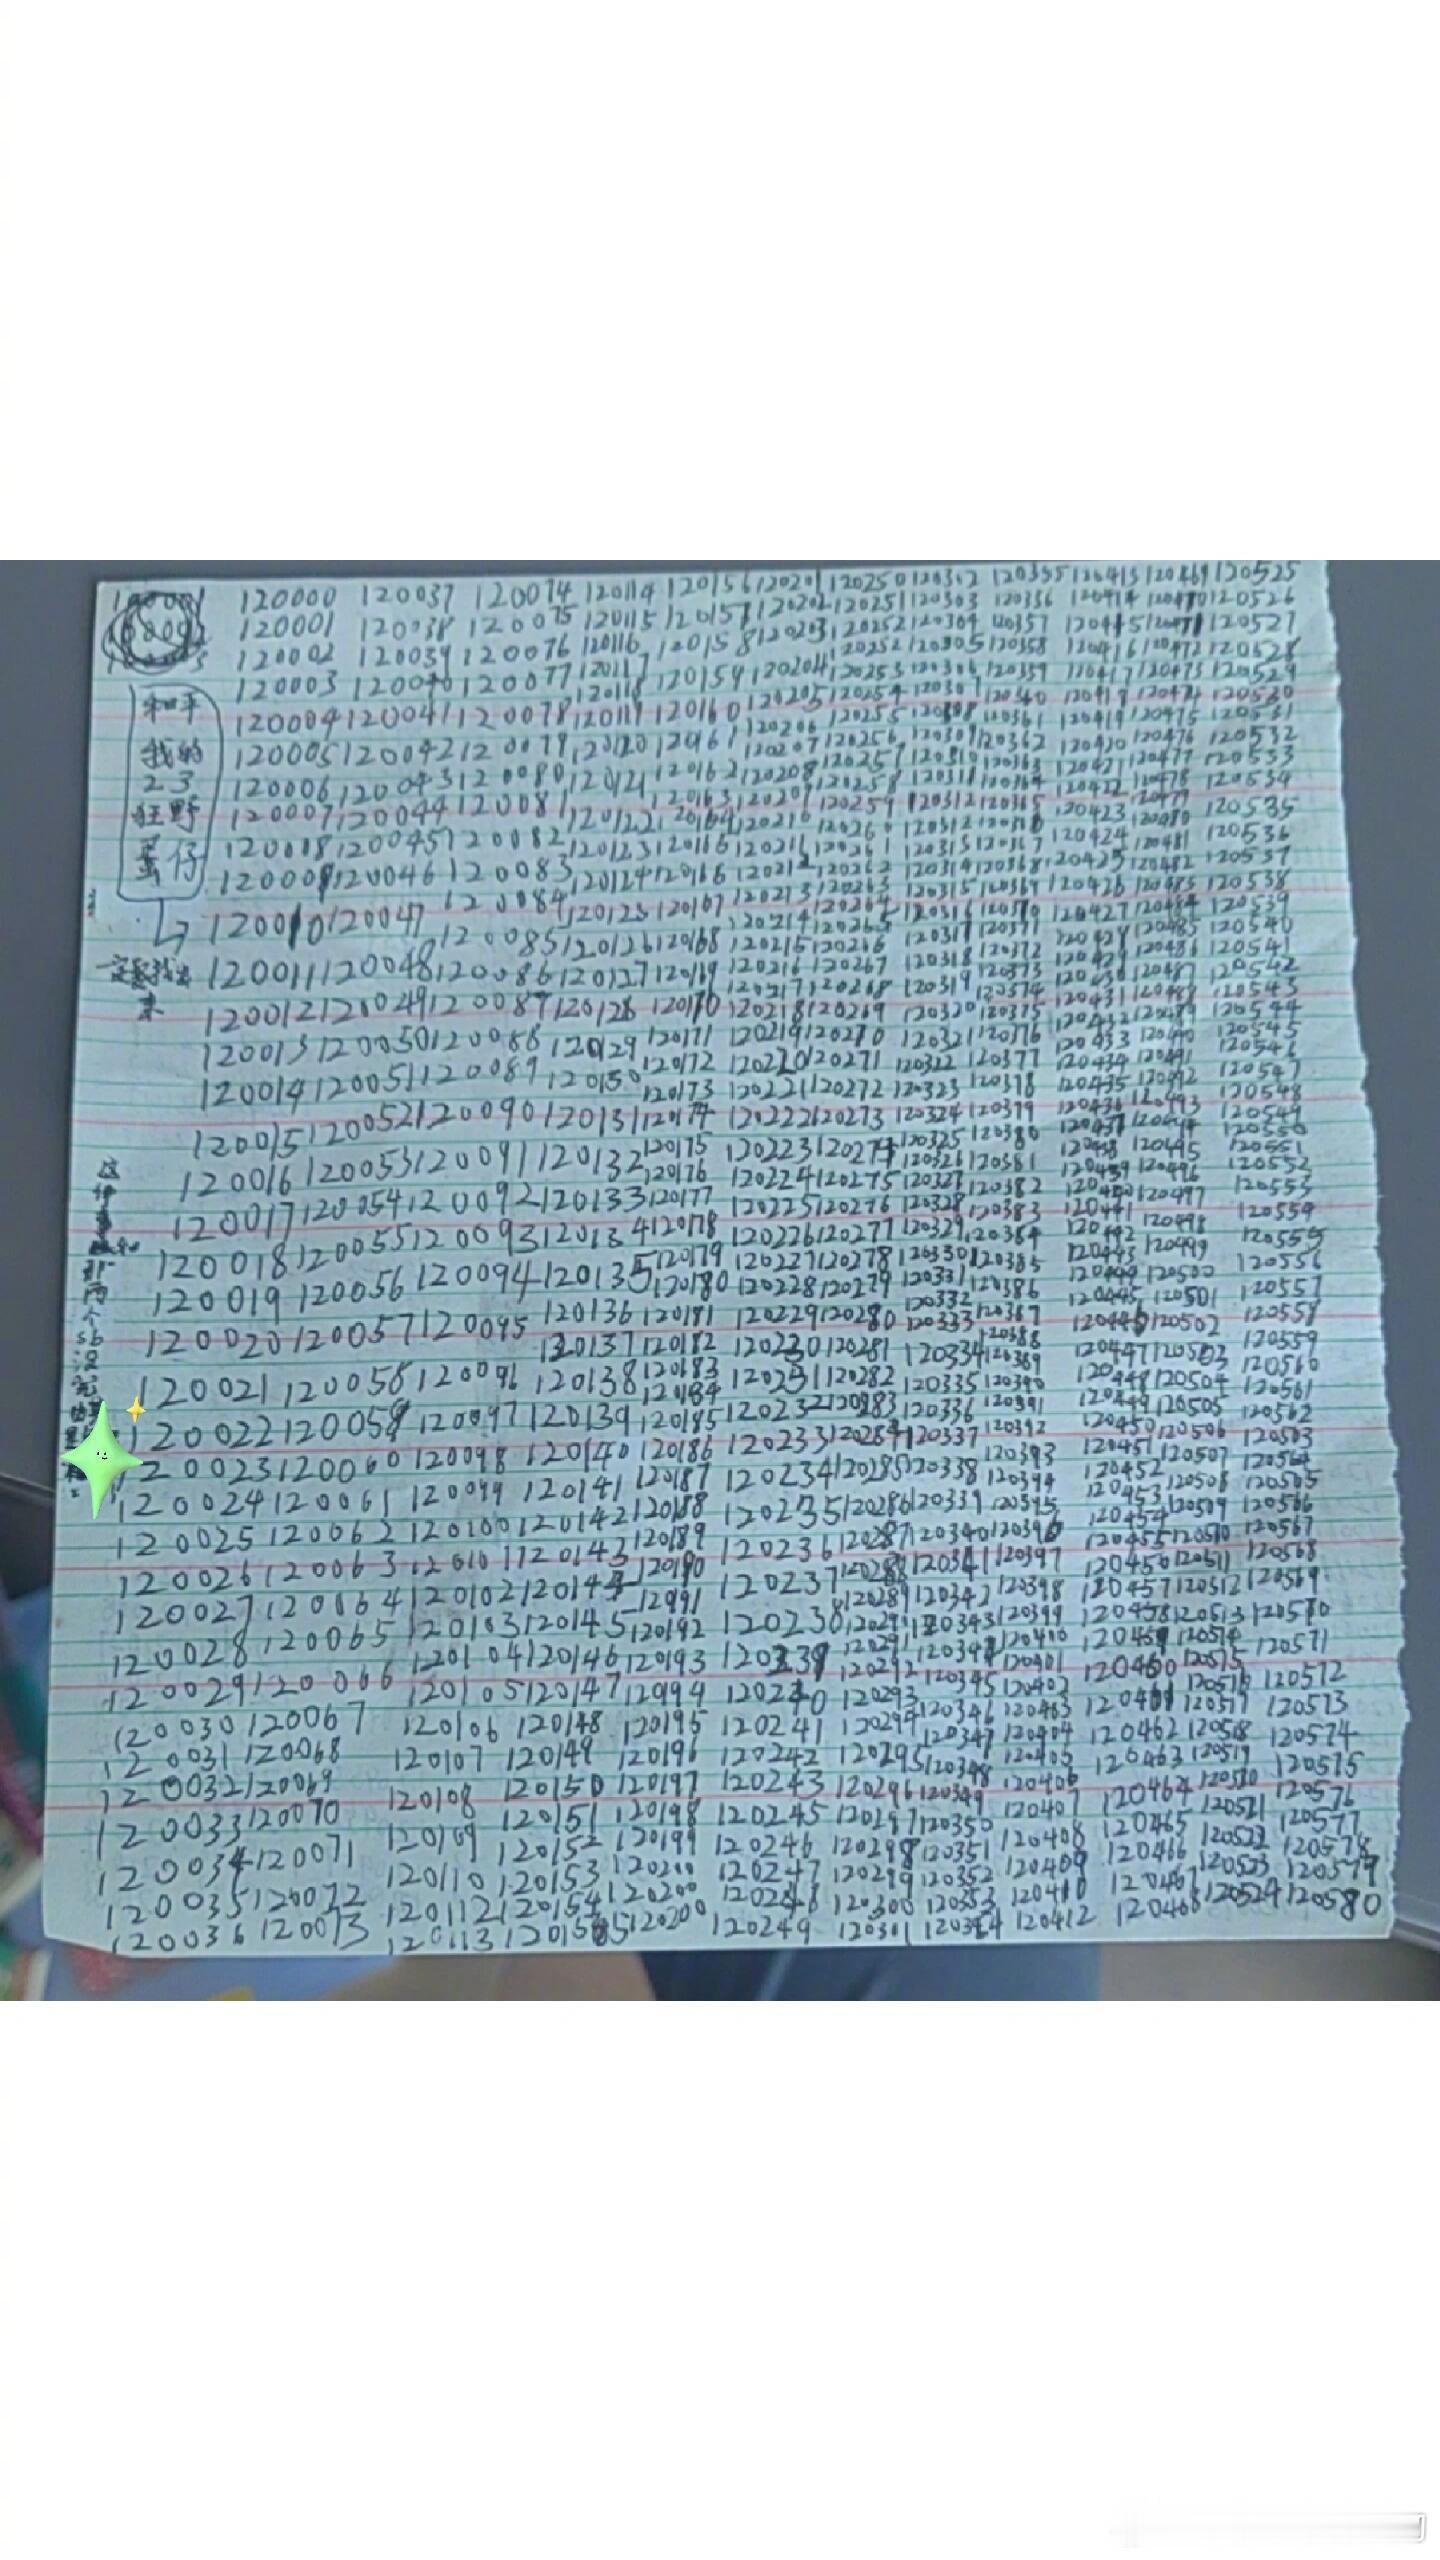 和平
我的
23
狂野
蛋仔
一定要找出
来
120000 120001 120002 120003 120004 120005 120006 120007 120008 120009 120010 120011 120012 120013 120014 120015 120016 120017 120018 120019 120020 120021 120022 120023 120024 120025 120026 120027 120028 120029 120030 120031 120032 120033 120034 120035 120036
120037 120038 120039 120040 120041 120042 120043 120044 120045 120046 120047 120048 120049 120050 120051 120052 120053 120054 120055 120056 120057 120058 120059 120060 120061 120062 120063 120064 120065 120066 120067 120068 120069 120070 120071 120072 120073
120074 120075 120076 120077 120078 120079 120080 120081 120082 120083 120084 120085 120086 120087 120088 120089 120090 120091 120092 120093 120094 120095 120096 120097 120098 120099 120100 120101 120102 120103 120104 120105 120106 120107 120108 120109 120110 120112 120113
120114 120115 120116 120117 120118 120119 120120 120121 120122 120123 120124 120125 120126 120127 120128 120129 120130 120131 120132 120133 120134 120135 120136 120137 120138 120139 120140 120141 120142 120143 120144 120145 120146 120147 120148 120149 120150 120151 120152 120153 120154 120155
120156 120157 120158 120159 120160 120161 120162 120163 120164 120167 120168 120169 120170 120171 120172 120173 120174 120175 120176 120177 120178 120179 120180 120181 120182 120183 120184 120185 120186 120187 120188 120189 120190 120192 120193 120195 120196 120197 120198 120199 120200 120200 120200
120201 120202 120203 120204 120205 120206 120207 120208 120209 120210 120211 120212 120213 120214 120215 120216 120217 120218 120219 120220 120221 120222 120223 120224 120225 120226 120227 120228 120229 120230 120231 120232 120233 120234 120235 120236 120237 120238 120239 120240 120241 120242 120243 120245 120246 120247 120248 120249
120250 120251 120252 120252 120253 120254 120255 120256 120257 120258 120259 120260 120261 120262 120263 120264 120265 120266 120267 120268 120269 120270 120271 120272 120273 120274 120275 120276 120277 120278 120279 120280 120281 120282 120283 120284 120285 120286 120287 120288 120289 120291 120292 120293 120294 120295 120296 120297 120298 120299 120300 120301
120302 120303 120304 120305 120306 120307 120308 120309 120310 120311 120312 120314 120315 120316 120317 120318 120319 120320 120321 120322 120323 120324 120325 120326 120327 120328 120329 120330 120331 120332 120333 120334 120335 120336 120337 120338 120339 120340 120341 120342 120343 120344 120345 120346 120347 120348 120349 120350 120351 120352 120353 120354
120355 120356 120357 120358 120359 120360 120361 120362 120363 120364 120365 120367 120368 120369 120370 120371 120372 120373 120374 120375 120376 120377 120378 120379 120380 120381 120382 120383 120384 120385 120386 120387 120388 120389 120390 120391 120392 120393 120394 120395 120396 120397 120398 120399 120400 120401 120402 120403 120404 120405 120406 120407 120408 120409 120410 120412
120413 120414 120415 120416 120417 120418 120419 120420 120421 120422 120423 120424 120425 120426 120427 120428 120429 120430 120431 120432 120433 120434 120435 120436 120437 120438 120439 120440 120441 120442 120443 120444 120445 120446 120447 120448 120449 120450 120451 120452 120453 120454 120455 120456 120457 120458 120459 120460 120461 120462 120463 120464 120465 120466 120467 120468
120469 120470 120471 120472 120473 120474 120475 120476 120477 120478 120479 120480 120481 120482 120483 120484 120485 120486 120487 120488 120489 120490 120491 120492 120493 120494 120495 120496 120497 120498 120499 120500 120501 120502 120503 120504 120505 120506 120507 120508 120509 120510 120511 120512 120513 120514 120515 120516 120517 120518 120519 120520 120521 120522 120523 120524
120525 120526 120527 120528 120529 120530 120531 120532 120533 120534 120535 120536 120537 120538 120539 120540 120541 120542 120543 120544 120545 120546 120547 120548 120549 120550 120551 120552 120553 120554 120555 120556 120557 120558 120559 120560 120561 120562 120563 120564 120565 120566 120567 120568 120569 120570 120571 120572 120573 120574 120575 120576 120577 120578 120579 120580
那两个sb没